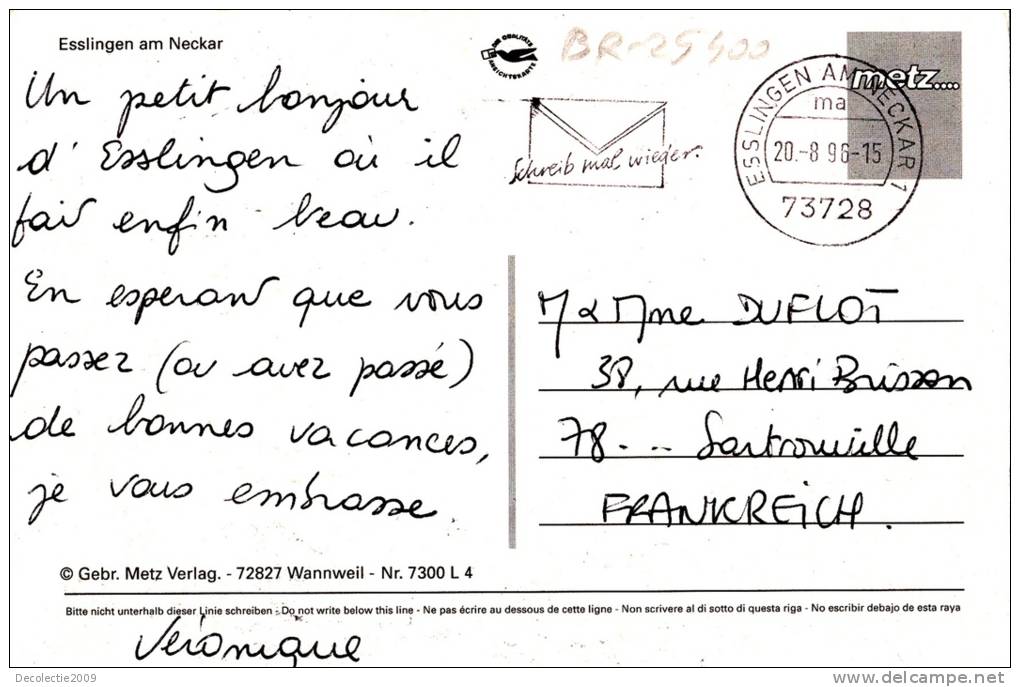 Esslingen am Neckar
Un petit bonjour
d'Esslingen où il
fait enfin beau.
En esperant que vous
passez (ou avez passé)
de bonnes vacances,
je vous embrasse.
Véronique
BR-25400
DIE QUALITÄTS
ANSICHTSKARTE
Schreib mal wieder.
ESSLINGEN AM NECKAR 1
ma
20.-8 96-15
73728
metz....
M & Mme DUFLOT
38, rue Henri Brisson
78... Sartrouville
FRANKREICH.
© Gebr. Metz Verlag. - 72827 Wannweil - Nr. 7300 L 4
Bitte nicht unterhalb dieser Linie schreiben - Do not write below this line - Ne pas écrire au dessous de cette ligne - Non scrivere al di sotto di questa riga - No escribir debajo de esta raya
Decolectie2009
www.delcampe.net